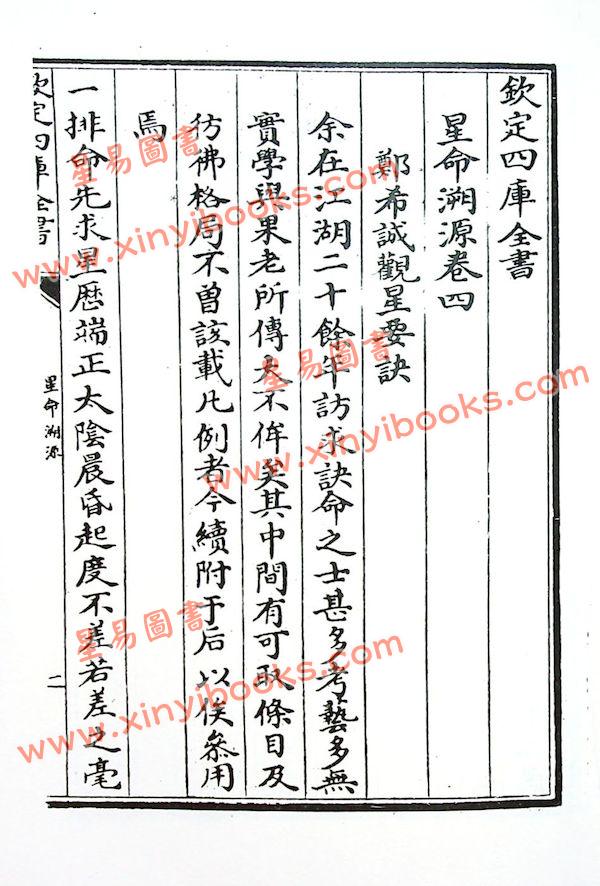 欽定四庫全書
星命溯源卷四
鄭希誠觀星要訣
余在江湖二十餘年訪求訣命之士甚多考藝多無
實學與果老所傳大不侔矣其中間有可取條目及
彷彿格局不曾該載凡例者今續附于后以俟叅用
焉
一排命先求星歴端正太陰晨昏起度不差若差之毫
欽定四庫全書
星命溯源
二
星易圖書
www.xinyibooks.com
星易圖書
www.xinyibooks.com
星易圖書
www.xinyibooks.com